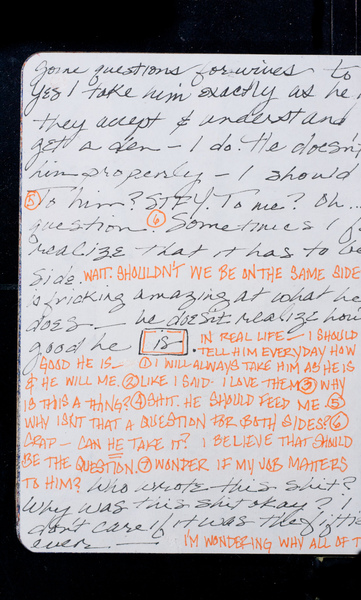 some questions for wives — to
yes I take him exactly as he i
they accept & understand
get a den — I do. He doesn't
him properly — I should
⑤ To him? STFY. To me? Oh...
question. ⑥ Sometimes I f
realize that it has to be
side. WAIT. SHOULDN'T WE BE ON THE SAME SIDE
is fricking amazing at what he
does — he doesn't realize how
good he is. IN REAL LIFE — I SHOULD
TELL HIM EVERYDAY HOW
GOOD HE IS — ① I WILL ALWAYS TAKE HIM AS HE IS
& HE WILL ME. ② LIKE I SAID. I LOVE THEM ③ WHY
IS THIS A THING? ④ SHIT. HE SHOULD FEED ME. ⑤
WHY ISN'T THAT A QUESTION FOR BOTH SIDES? ⑥
CRAP — CAN HE TAKE IT? I BELIEVE THAT SHOULD
BE THE QUESTION. ⑦ WONDER IF MY JOB MATTERS
TO HIM? Who wrote this shit?
Why was this shit okay? I
don't care if it was the fifti
ever —
I'M WONDERING WHY ALL OF T